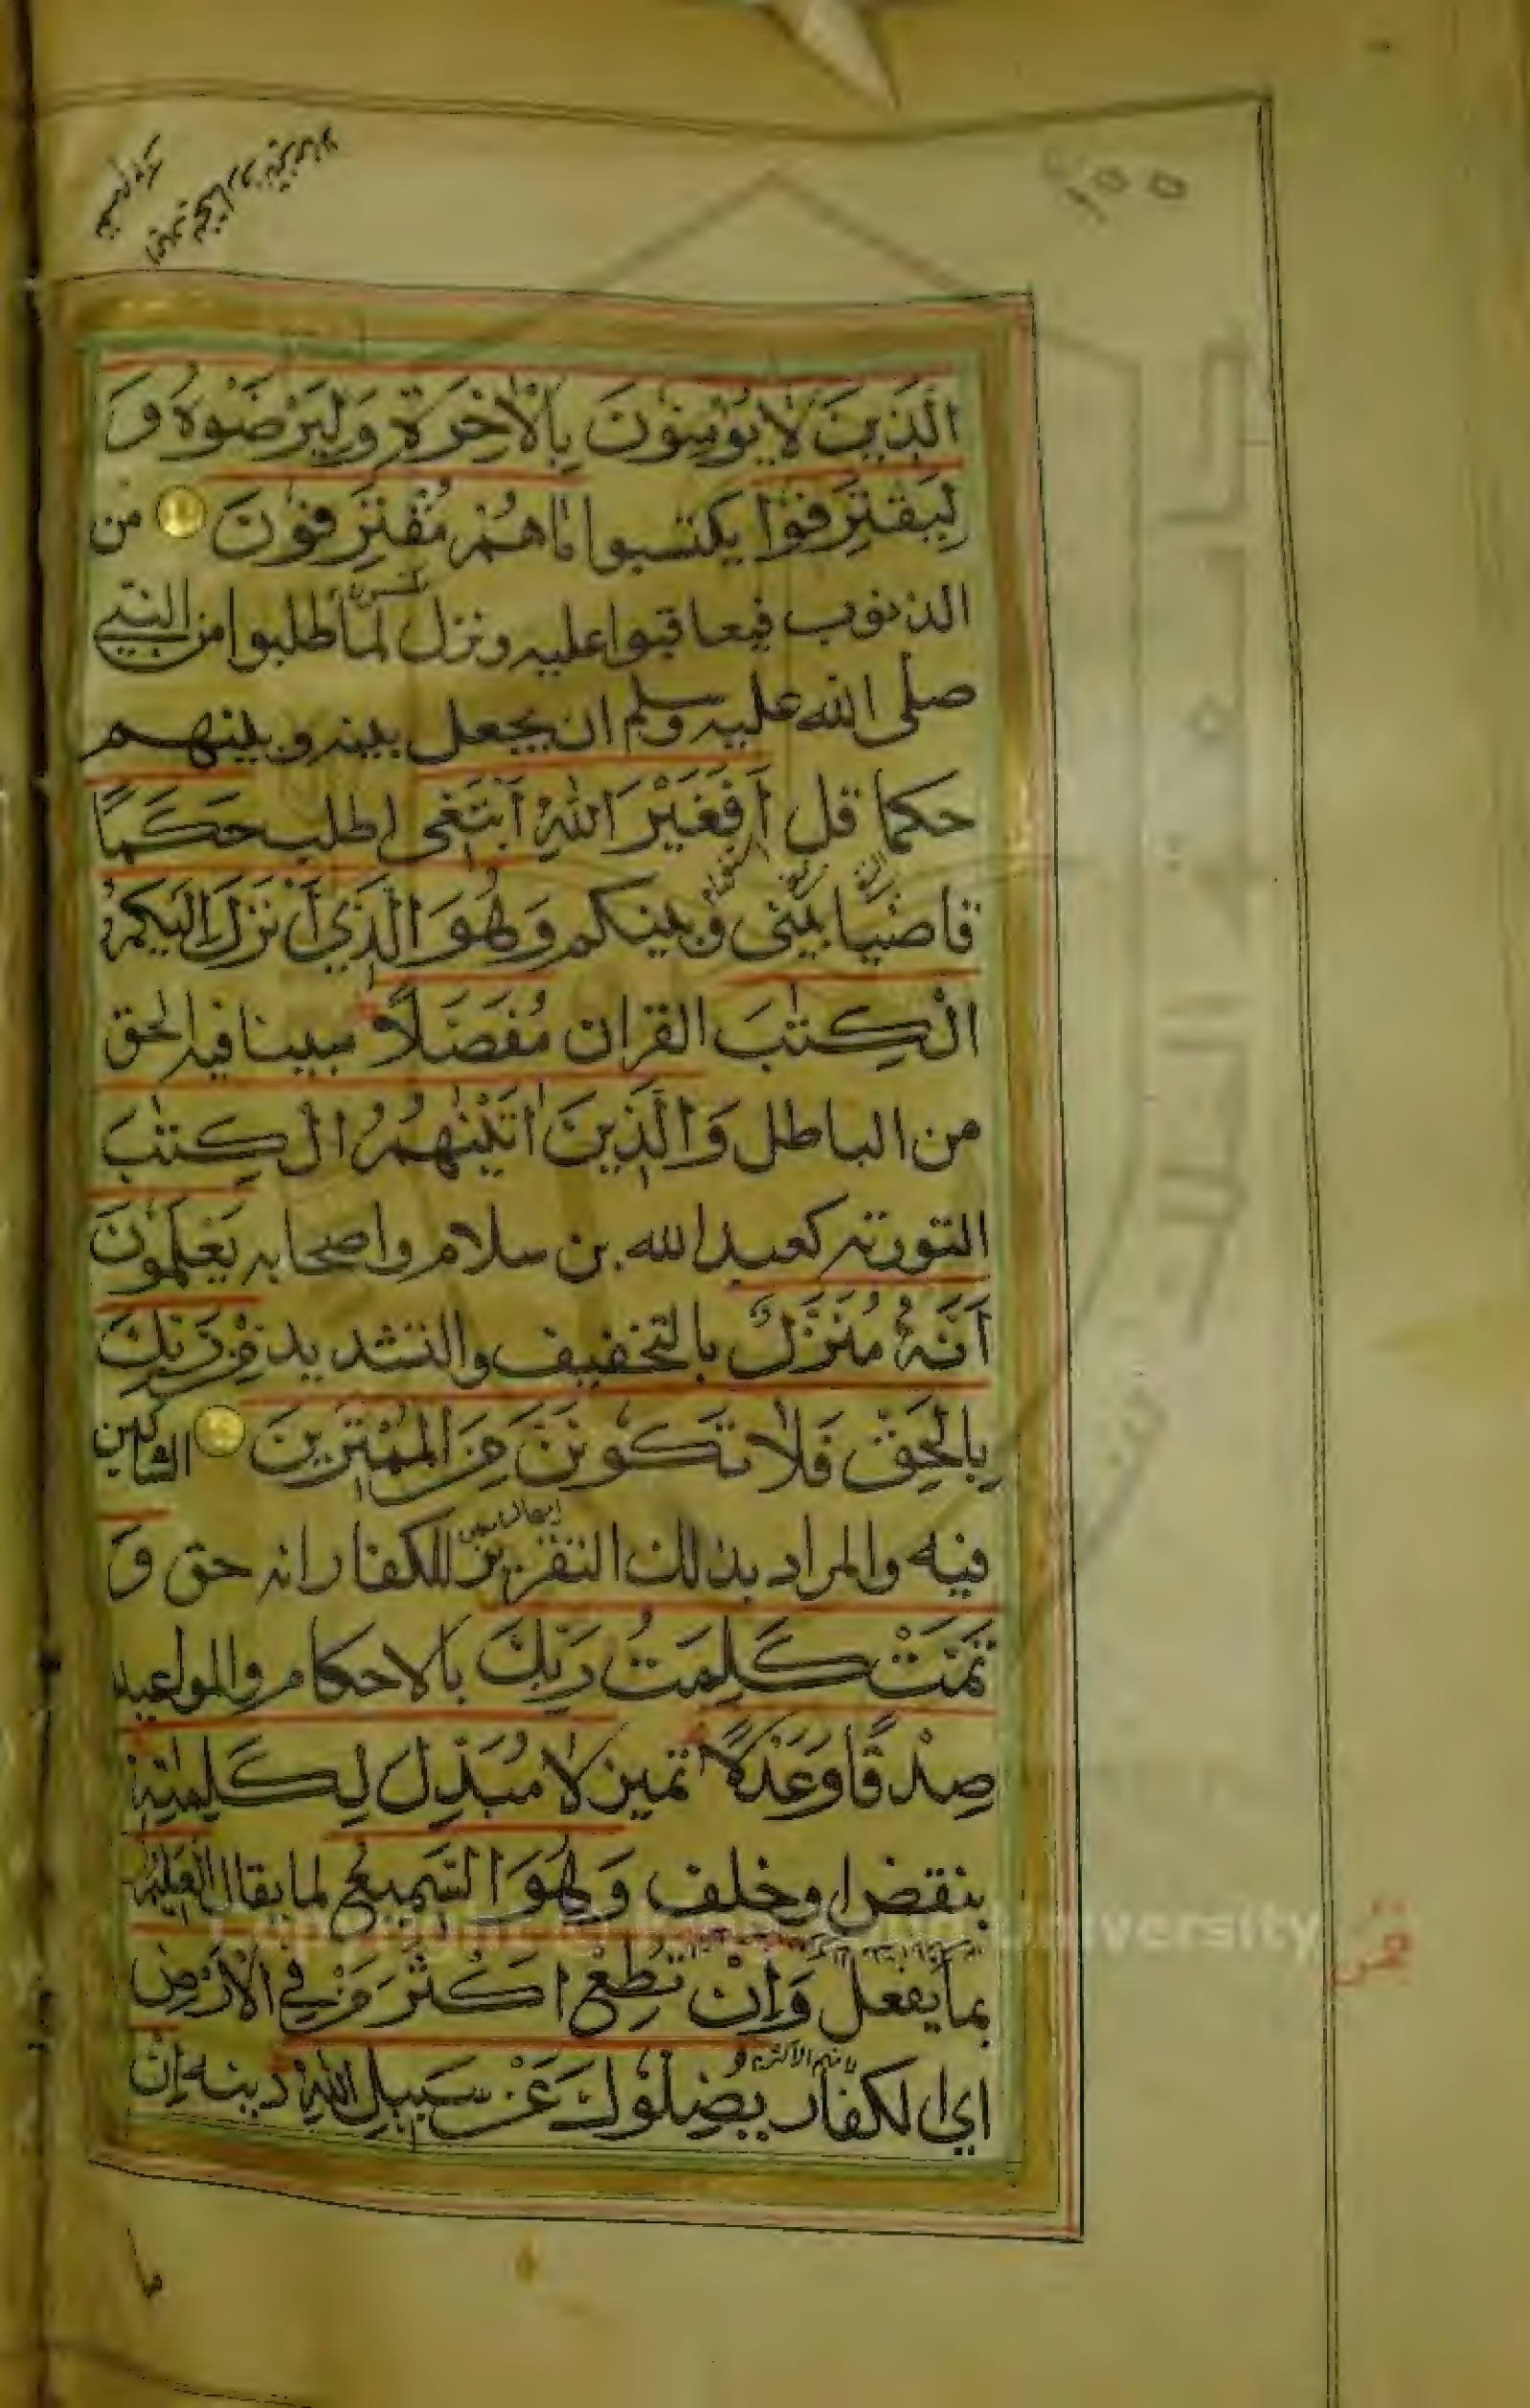 ١٥٥
الَّذِينَ لَا يُؤْمِنُونَ بِالْاٰخِرَةِ وَلِيَرْضَوْهُ وَ
لِيَقْتَرِفُوْا يكتسبوا مَاهُمْ مُّقْتَرِفُوْنَ من
الذنوب فيعاقبوا عليه ونزل لما طلبوا من النبي
صلى الله عليه وسلم ان يجعل بينه وبينهم
حكما قل أَفَغَيْرَ اللّٰهِ أَبْتَغِى اطلب حَكَمًا
قاضيا بينى وبينكم وَهُوَ الَّذِي أَنْزَلَ اِلَيْكُمُ
الْكِتٰبَ القران مُفَصَّلًا مبينا فيه الحق
من الباطل وَالَّذِينَ اٰتَيْنٰهُمُ الْكِتٰبَ
التورته كعبد الله بن سلام واصحابه يَعْلَمُوْنَ
أَنَّهُ مُنَزَّلٌ بالتخفيف والتشديد مِنْ رَبِّكَ
بِالْحَقِّ فَلَا تَكُوْنَنَّ مِنَ الْمُمْتَرِينَ الشاكين
فيه والمراد بذلك التقرير للكفار انه حق وَ
تَمَّتْ كَلِمَتُ رَبِّكَ بالاحكام والمواعيد
صِدْقًا وَعَدْلًا تميز لَا مُبَدِّلَ لِكَلِمٰتِهٖ
بنقض او خلف وَهُوَ السَّمِيعُ لما يقال الْعَلِيْمُ
بما يفعل وَإِنْ تُطِعْ اَكْثَرَ مَنْ فِي الْاَرْضِ
اي الكفار يُضِلُّوْكَ عَنْ سَبِيلِ اللّٰهِ دينه اِنْ
Copyright © King Saud University